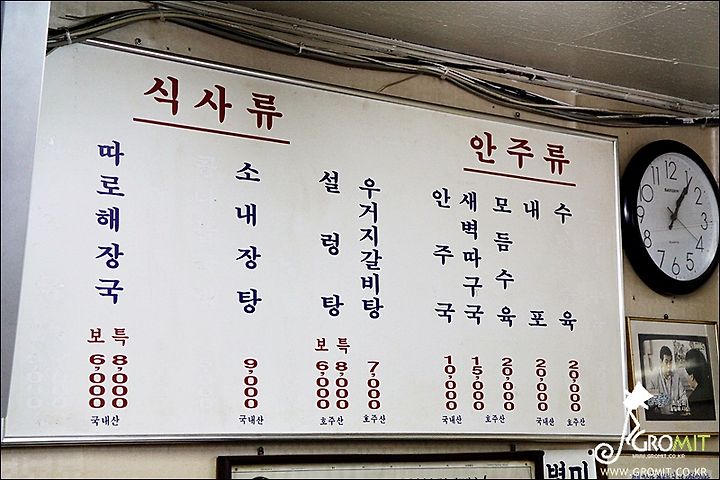 식사류
따로해장국
보 특
6,000 8,000
국내산
소내장탕
9,000
국내산
설렁탕
보 특
6,000 8,000
호주산
우거지갈비탕
7,000
호주산
안주류
안주국
10,000
국내산
새벽따구국
15,000
모듬수육
20,000
호주산
내포
20,000
국내산
수육
20,000
호주산
12
1
2
3
4
5
6
7
8
9
10
11
별미
GROMIT
WWW.GROMIT.CO.KR
WWW.GROMIT.CO.KR